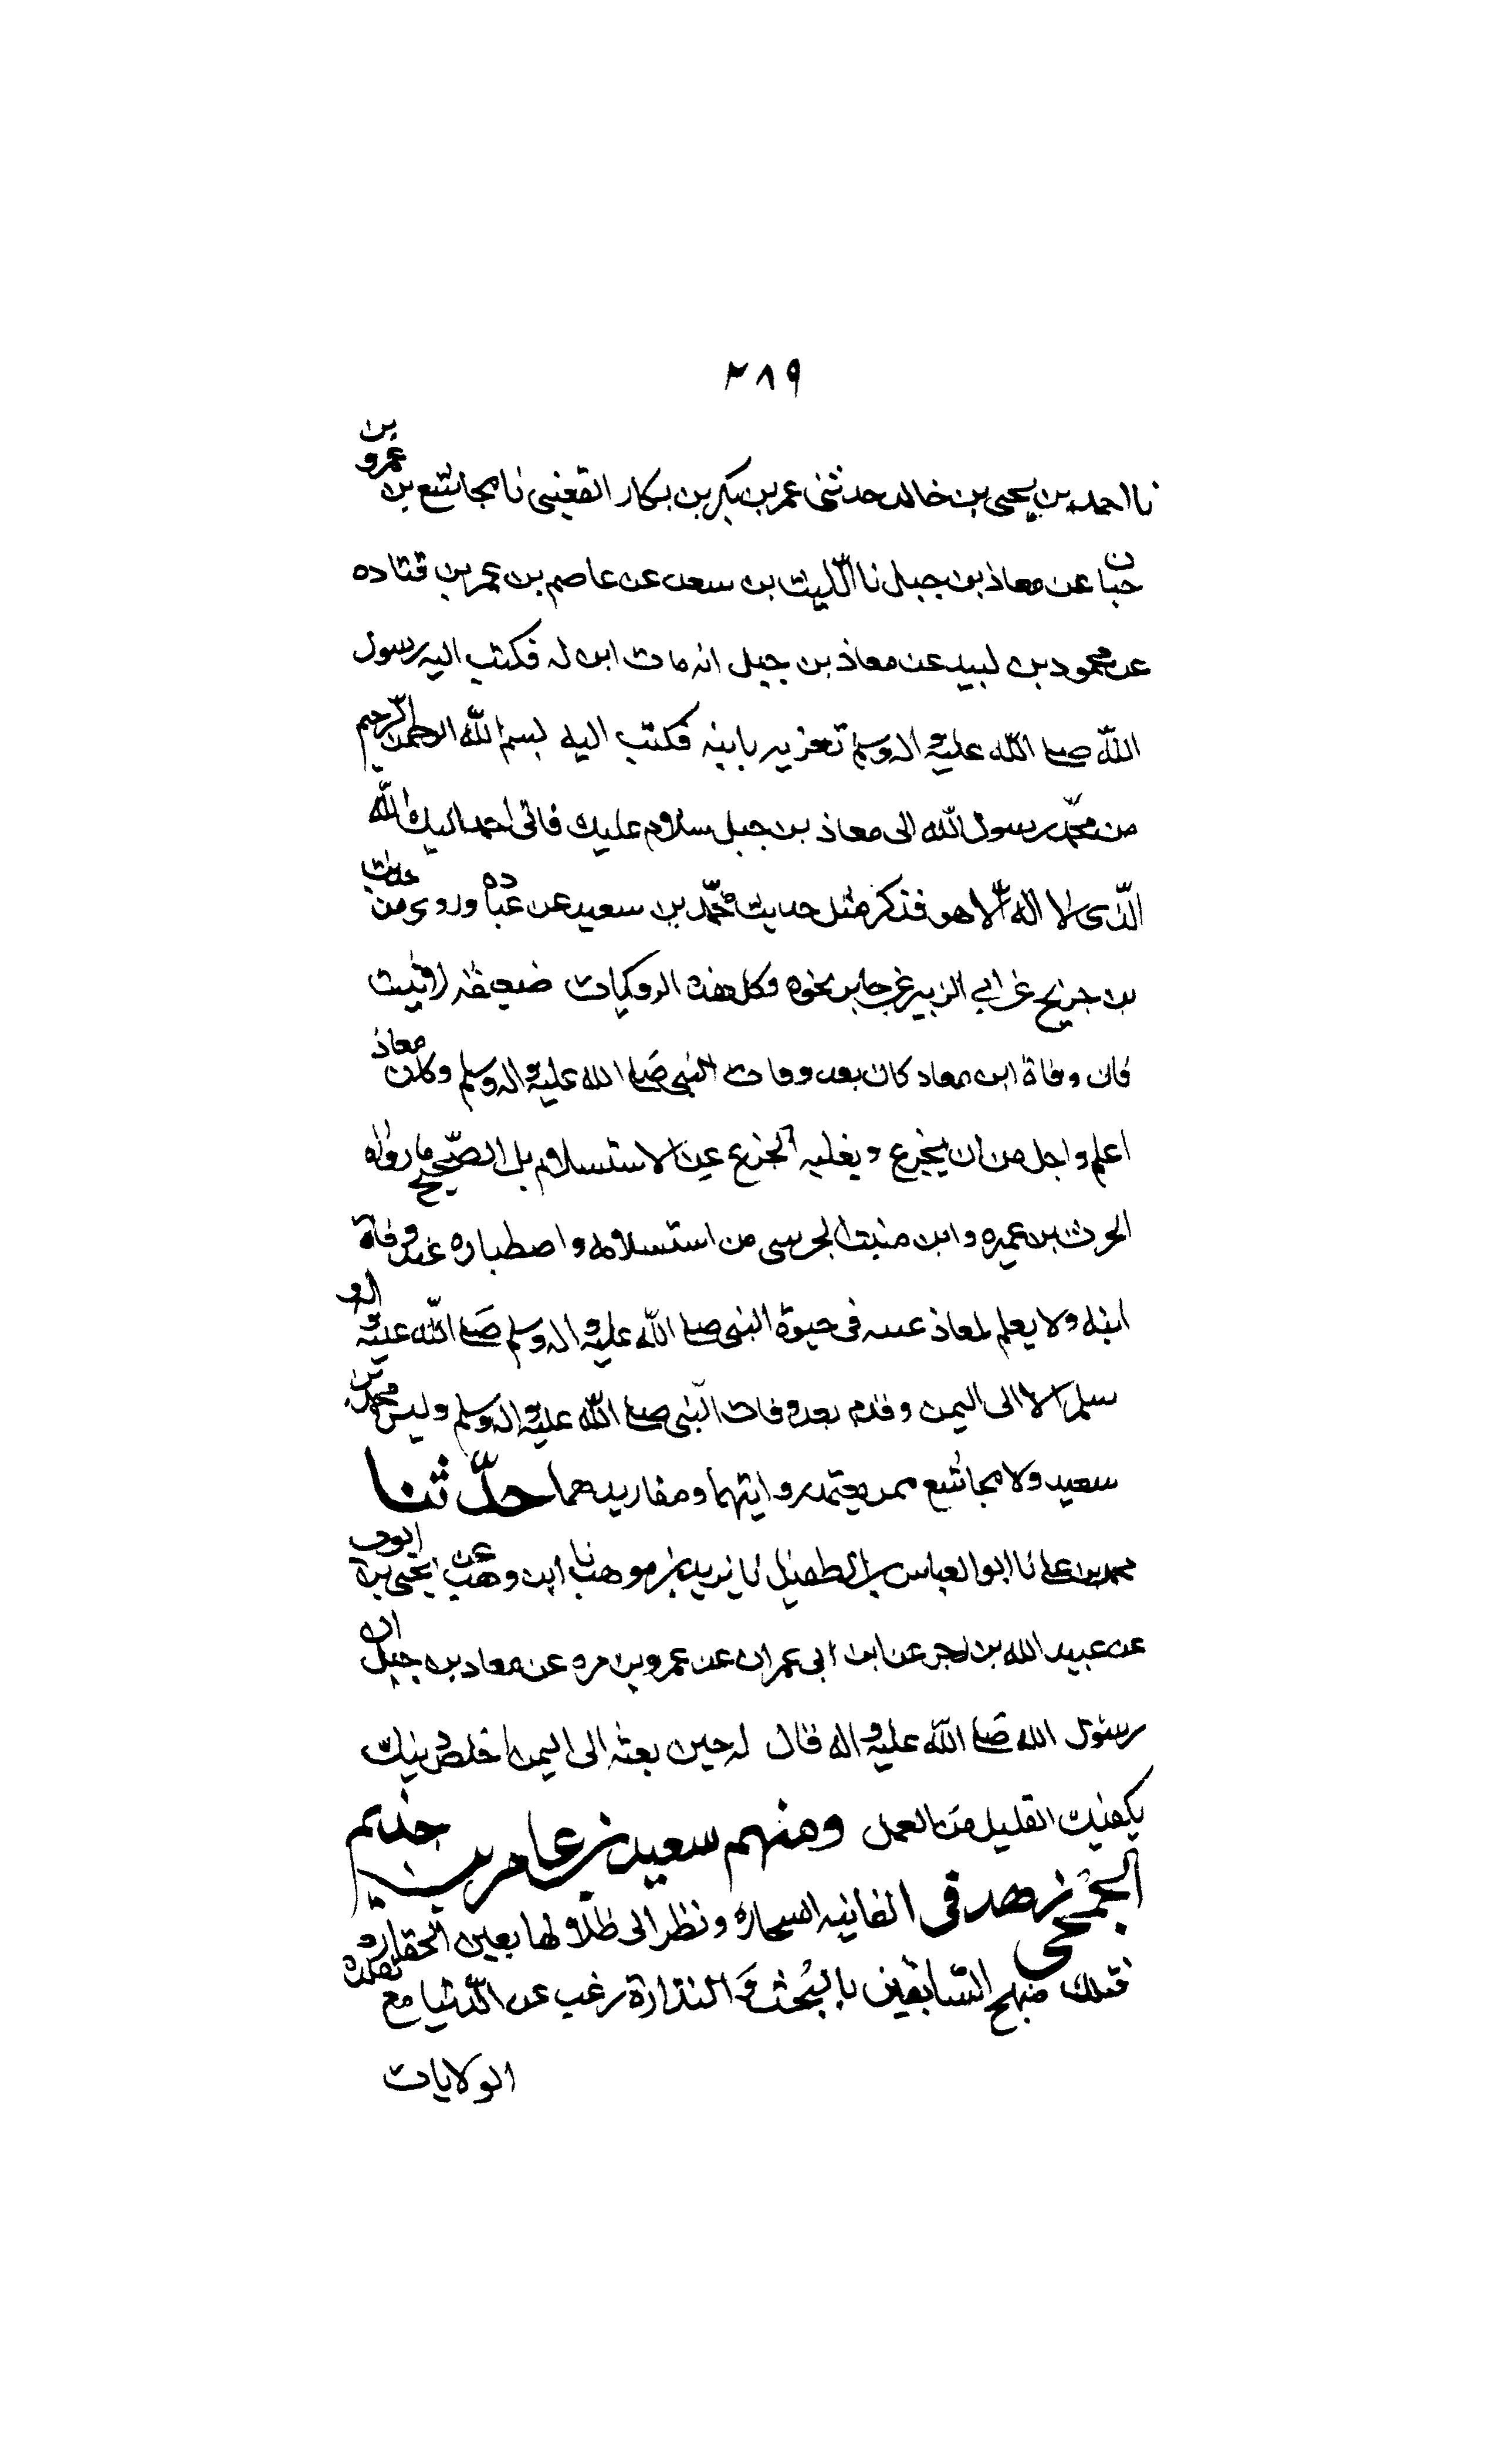 ٢٨٩
نا احمد بن يحيى بن خالد حدثنى عمر بن بكر بن بكار القعنبى نا مجاشع بن عمرو بن
حبان عن معاذ بن جبل نا الليث بن سعد عن عاصم بن عمر بن قتاده
عن محمود بن لبيد عن معاذ بن جبل انه مات ابن له فكتب اليه رسول
الله صلى الله عليه واله وسلم تعزيه بابنه فكتب اليه بسم الله الرحمن الرحيم
من محمد رسول الله الى معاذ بن جبل سلام عليك فانى احمد اليك الله
الذى لا اله الا هو فذكر مثل حديث محمد بن سعيد عن عباده وروى من حديث
بن جريج عن ابي الزبير عن جابر نحوه وكل هذه الروايات ضعيفه لا تثبت
فان وفاة ابن معاد كان بعد وفات النبى صلى الله عليه واله وسلم وكان معاذ
اعلم واجل من ان يجزع ويغلبه الجزع عن الاستسلام بل الصحيح ما رواه
الحرث بن عميره وابن منيب الجرسى من استسلامه واصطباره عند وفاة
ابنه ولا يعلم لمعاذ غيبه فى حيوة النبى صلى الله عليه واله وسلم صلى الله عليه واله و
سلم الا الى اليمن وقدم بعد وفات النبى صلى الله عليه واله وسلم وليس محمد بن
سعيد ولا مجاشع ممن يعتمد روايتهما ومفاريدهما حدّثنا
محمد بن على نا ابو العباس بن الطفيل نا يزيد بن موهب نا ابن وهب عن يحيى بن ايوب
عن عبيد الله بن زحر عن ابن ابى عمران عن عمرو بن مره عن معاد بن جبل ان
رسول الله صلى الله عليه واله قال له حين بعثه الى اليمن اخلص دينك
يكفيك القليل من العمل ومنهم سعيد بن عامر بن خذيم
الجمحى زهد فى الفانيه السحاره ونظر الى طلا لها بعين الحقاره
فتلك منهج السابقين بالبحث و النذارة رغب عن الدنيا مع تقلده
الولايات